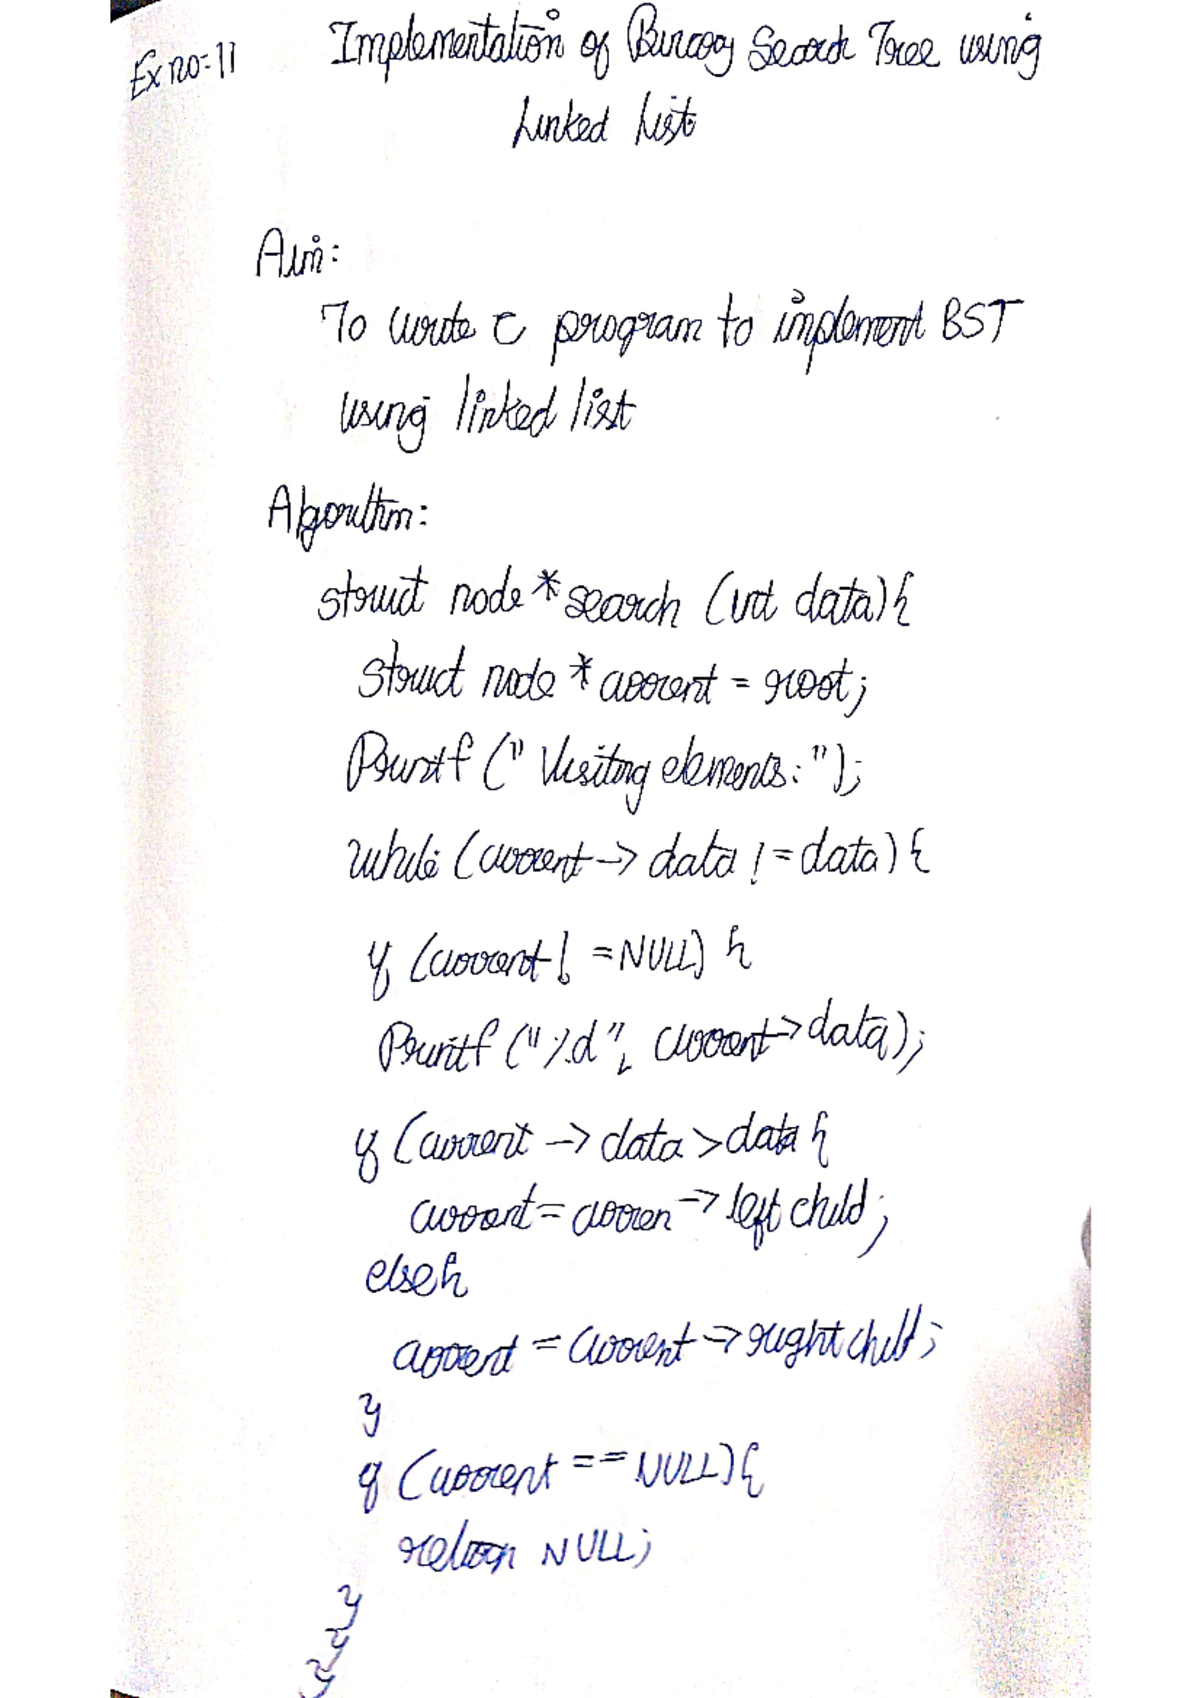 Ex no:11
Implementation of Binary Search Tree using
Linked List
Aim:
To write C program to implement BST
using linked list
Algorithm:
struct node * search (int data){
struct node * current = root;
Printf (" Visiting elements: ");
while (current -> data != data) {
if (current != NULL) {
Printf ("%d", current -> data);
if (current -> data > data {
current = curren -> left child;
else {
current = current -> right child;
}
if (current == NULL) {
return NULL;
}
}
}
}